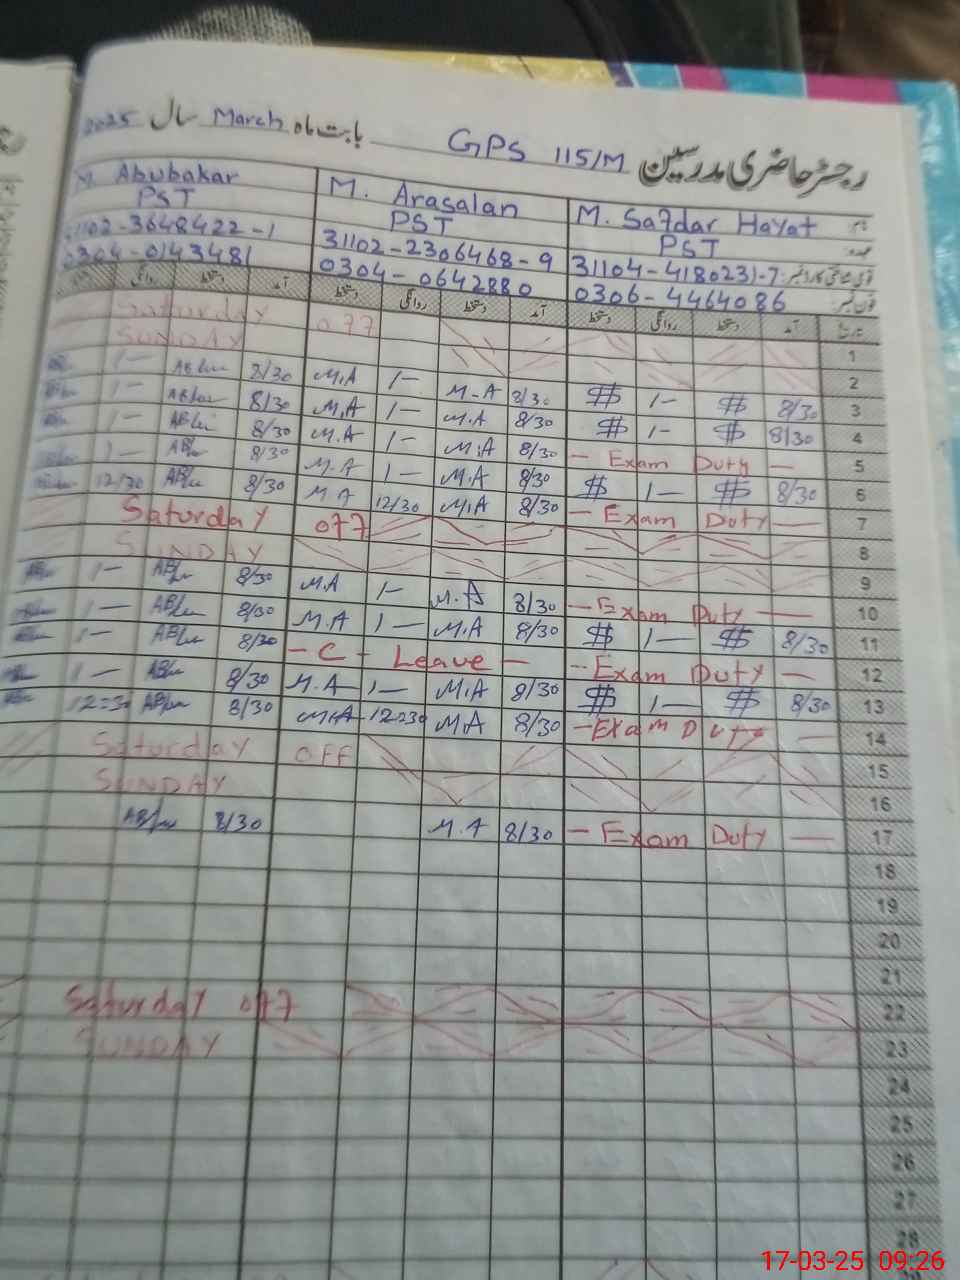 رجسٹر حاضری مدرسین GPS 115/M بابت ماہ March سال 2025
M. Abubakar M. Arasalan M. Safdar Hayat نام
PST PST PST عہدہ
31102-3648422-1 31102-2306468-9 31104-4180231-7 قومی شناختی کارڈ نمبر
0304-0143481 0304-0642880 0306-4464086 فون نمبر
روانگی دستخط آمد دستخط روانگی دستخط آمد دستخط روانگی دستخط آمد تاریخ
Saturday off 1
SUNDAY 2
1- 8/30 M.A 1- M.A 8/30 $ 1- $ 8/30 3
1- 8/30 M.A 1- M.A 8/30 $ 1- $ 8/30 4
1- 8/30 M.A 1- M.A 8/30 - Exam Duty - 5
1- 8/30 M.A 1- M.A 8/30 $ 1- $ 8/30 6
12/30 8/30 M.A 12/30 M.A 8/30 - Exam Duty - 7
Saturday off 8
SUNDAY 9
1- 8/30 M.A 1- M.A 8/30 - Exam Duty - 10
1- 8/30 M.A 1- M.A 8/30 $ 1- $ 8/30 11
1- 8/30 - C - Leave - - Exam Duty - 12
1- 8/30 M.A 1- M.A 8/30 $ 1- $ 8/30 13
12=30 8/30 M.A 12=30 M.A 8/30 - Exam Duty - 14
Saturday OFF 15
SUNDAY 16
8/30 M.A 8/30 - Exam Duty - 17
18
19
20
21
Saturday off 22
SUNDAY 23
24
25
26
27
28
17-03-25 09:26